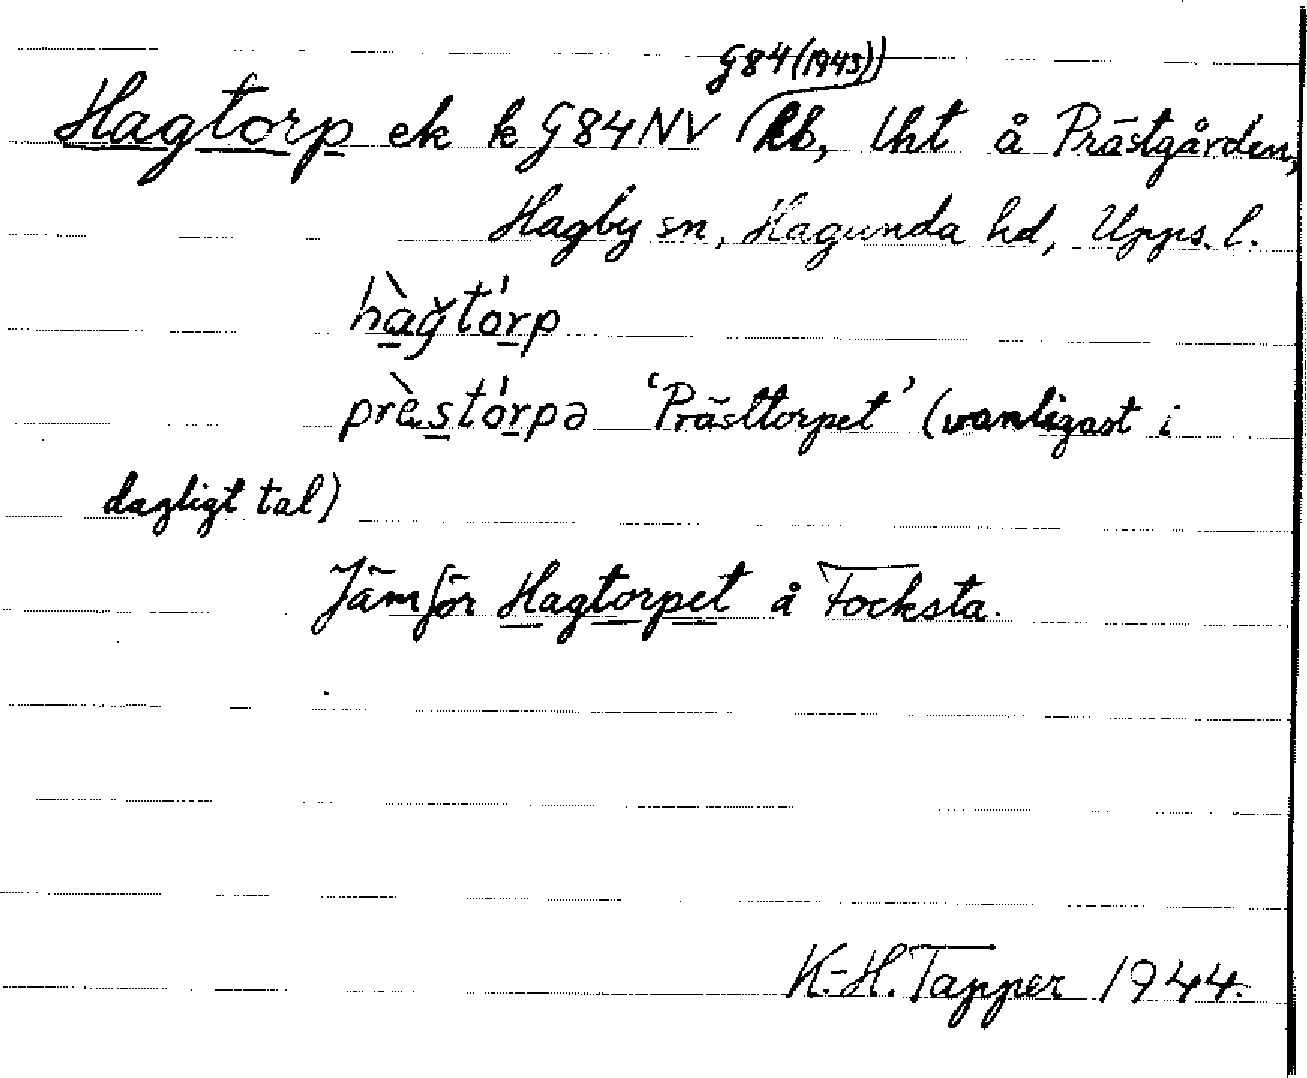 G84(1943))
Hagtorp ek k G84NV kb, lht å Prästgården,
Hagby sn, Hagunda hd, Upps. l.
hàgtórp
prèstórpə 'Prästtorpet' (vanligast i
dagligt tal)
Jämför Hagtorpet å Focksta.
K.-H. Tapper 1944.